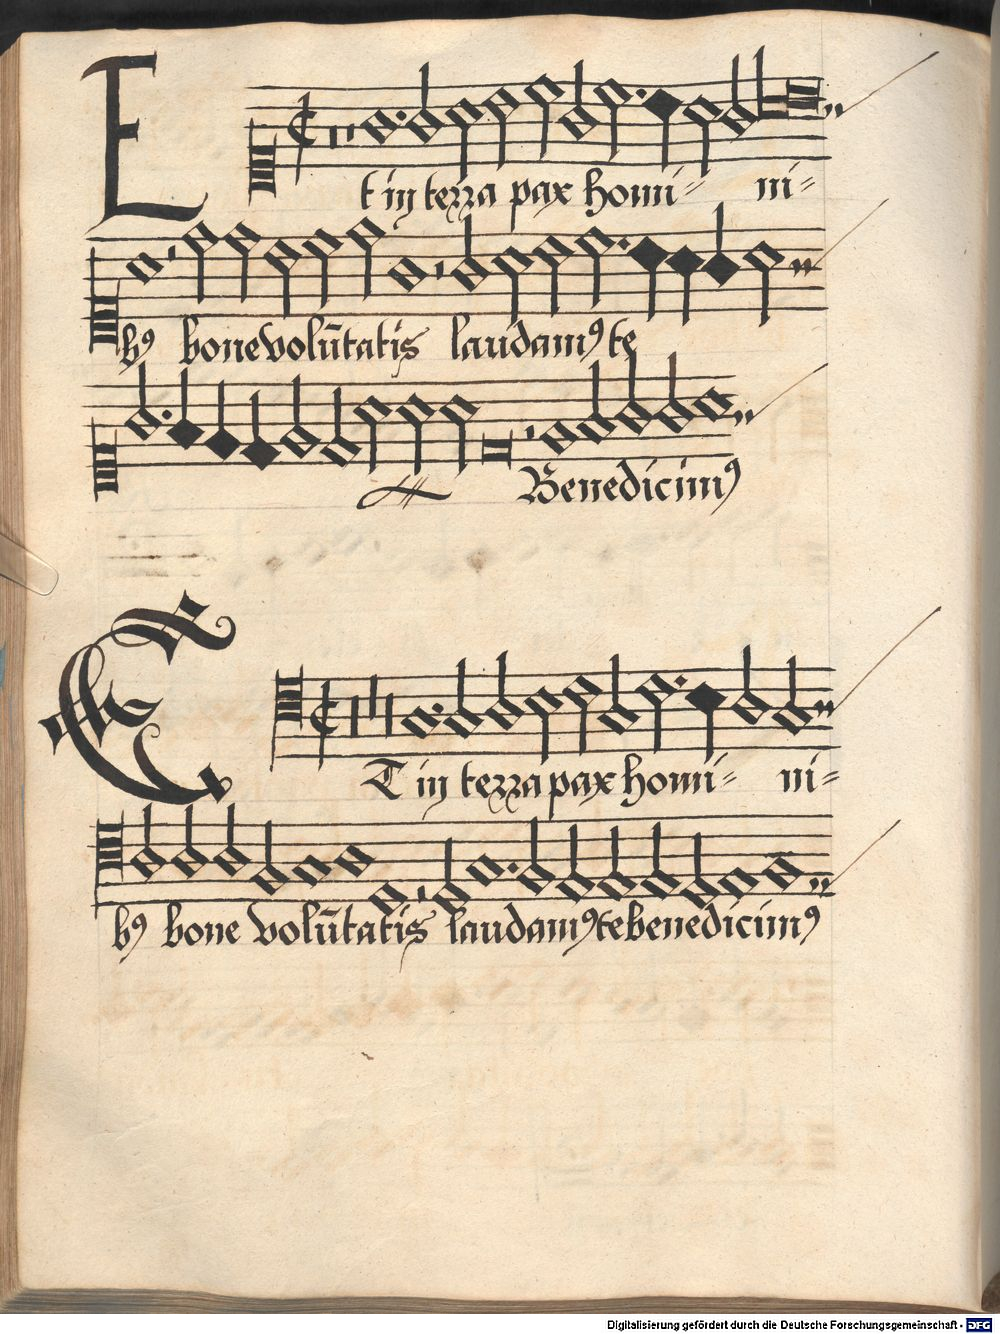 Et in terra pax homi⹀ ni⹀
bꝰ bone volūtatis laudamꝰ te
Benedicimꝰ
ET in terra pax homi⹀ ni⹀
bꝰ bone volūtatis laudamꝰ te benedicimꝰ
Digitalisierung gefördert durch die Deutsche Forschungsgemeinschaft - DFG